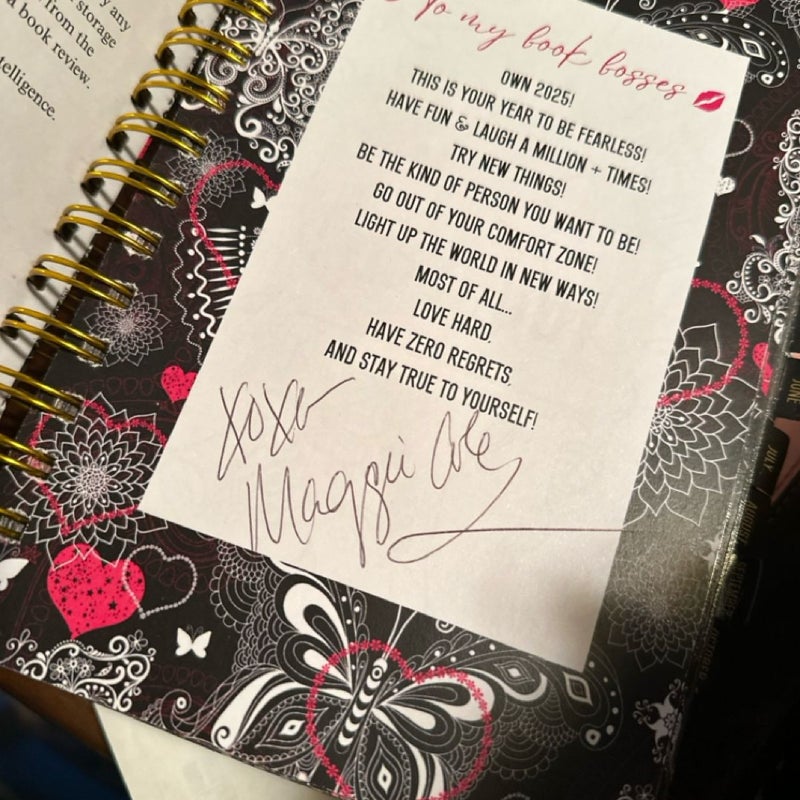 any
storage
from the
a book review.
telligence.
To my book bosses
OWN 2025!
THIS IS YOUR YEAR TO BE FEARLESS!
HAVE FUN & LAUGH A MILLION + TIMES!
TRY NEW THINGS!
BE THE KIND OF PERSON YOU WANT TO BE!
GO OUT OF YOUR COMFORT ZONE!
LIGHT UP THE WORLD IN NEW WAYS!
MOST OF ALL...
LOVE HARD.
HAVE ZERO REGRETS.
AND STAY TRUE TO YOURSELF!
XOXO
Maggie Cole
JUNE
JULY
AUGUST